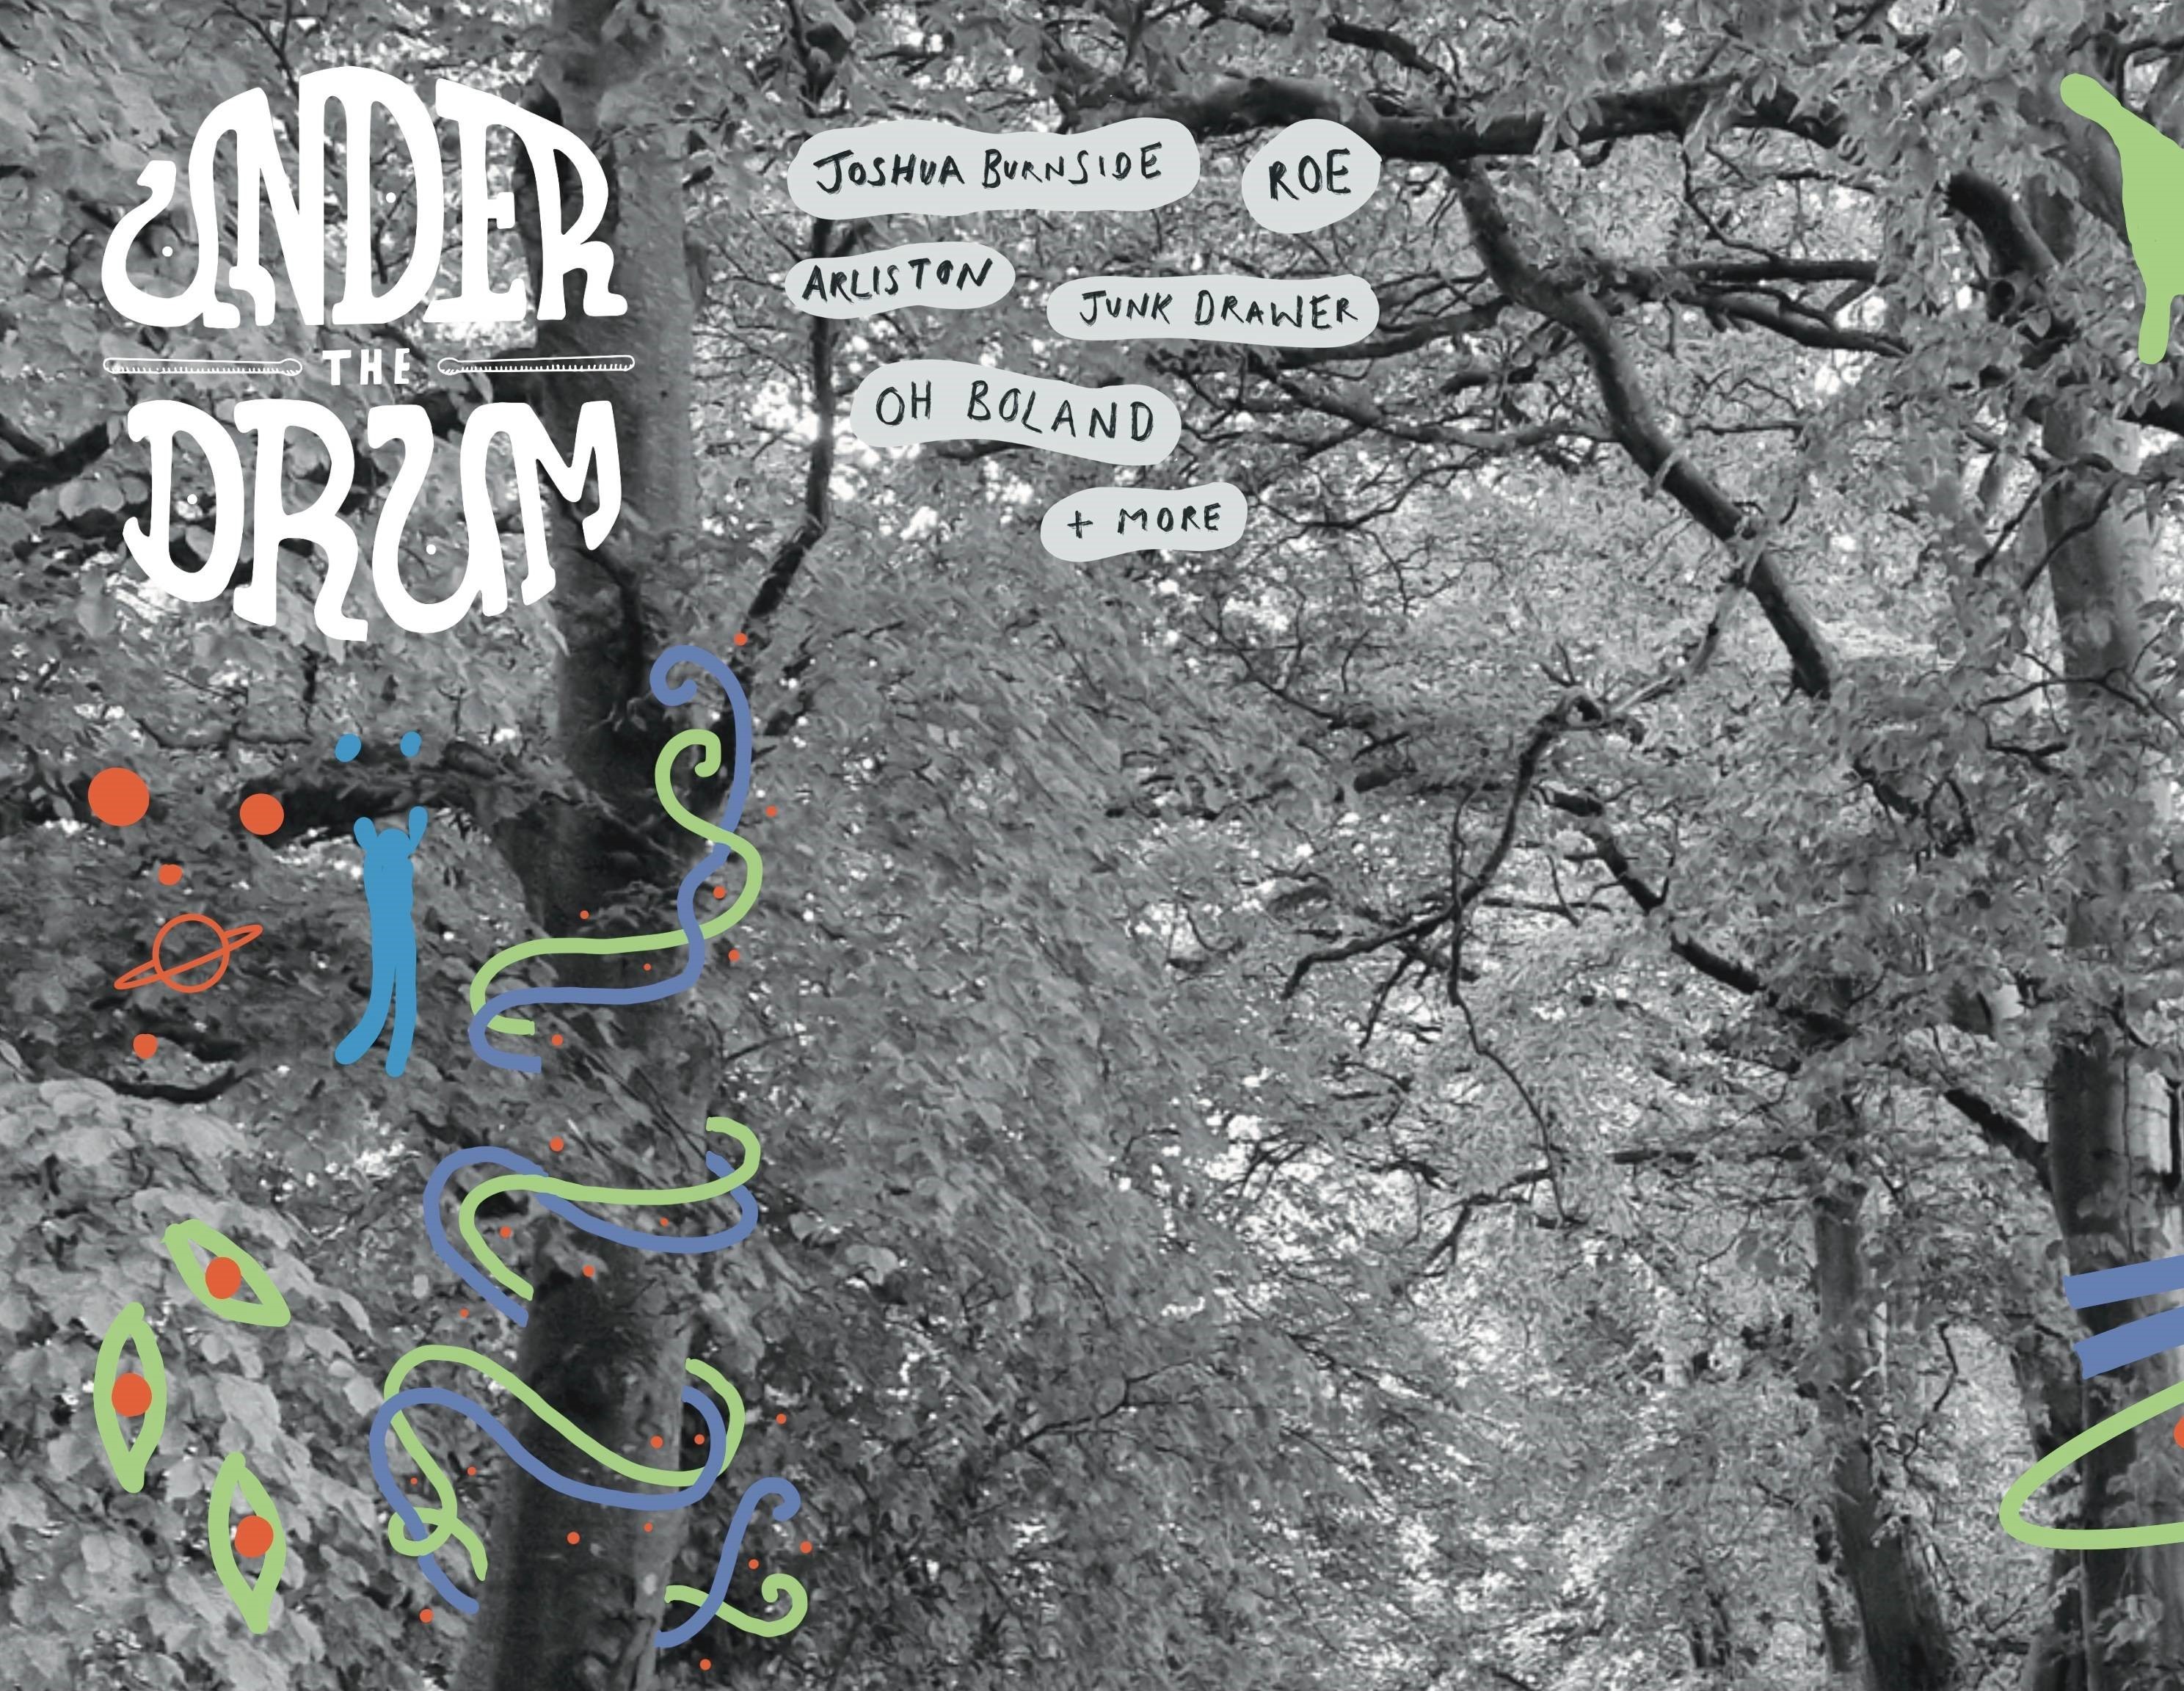 UNDER
THE
DRUM
JOSHUA BURNSIDE
ROE
ARLISTON
JUNK DRAWER
OH BOLAND
+ MORE